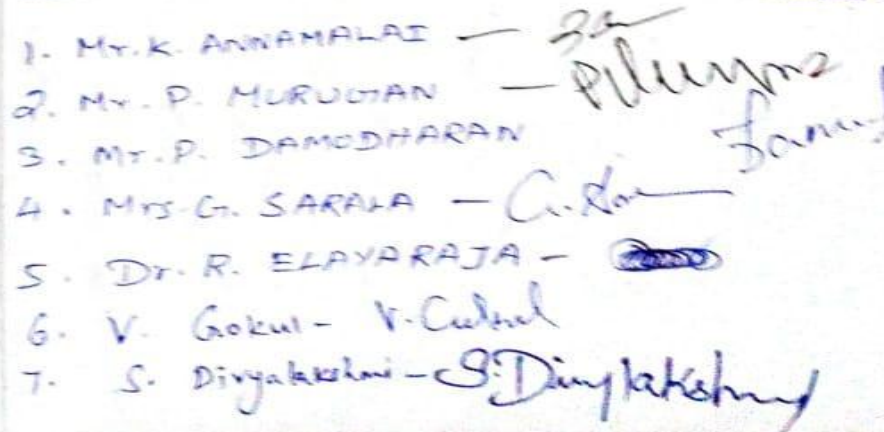 1. Mr. K. ANNAMALAI —
2. Mr. P. MURUGAN —
3. Mr. P. DAMODHARAN
4. Mrs. G. SARALA — G.
5. Dr. R. ELAYARAJA —
6. V. Gokul - V.
7. S. Divyalakshmi - S. Divyalakshmi